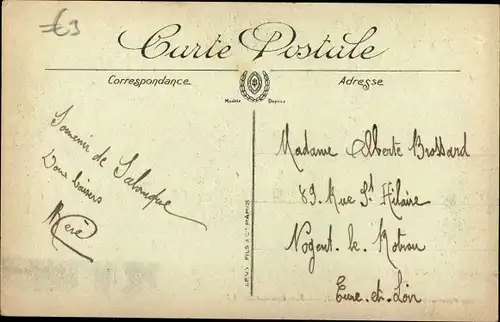 €3
Carte Postale
Correspondance
Adresse
Modèle Déposé
Souvenir de Salonique
Doux baisers
LEVY FILS & Cie PARIS
Madame Alberte Brossard
89 Rue St Hilaire
Nogent-le-Rotrou
Eure-et-Loir